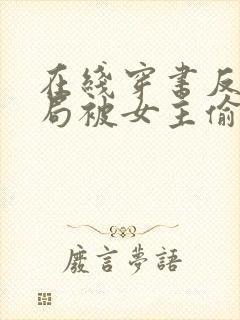 在綫穿書反
局被女主偷
廢言夢語